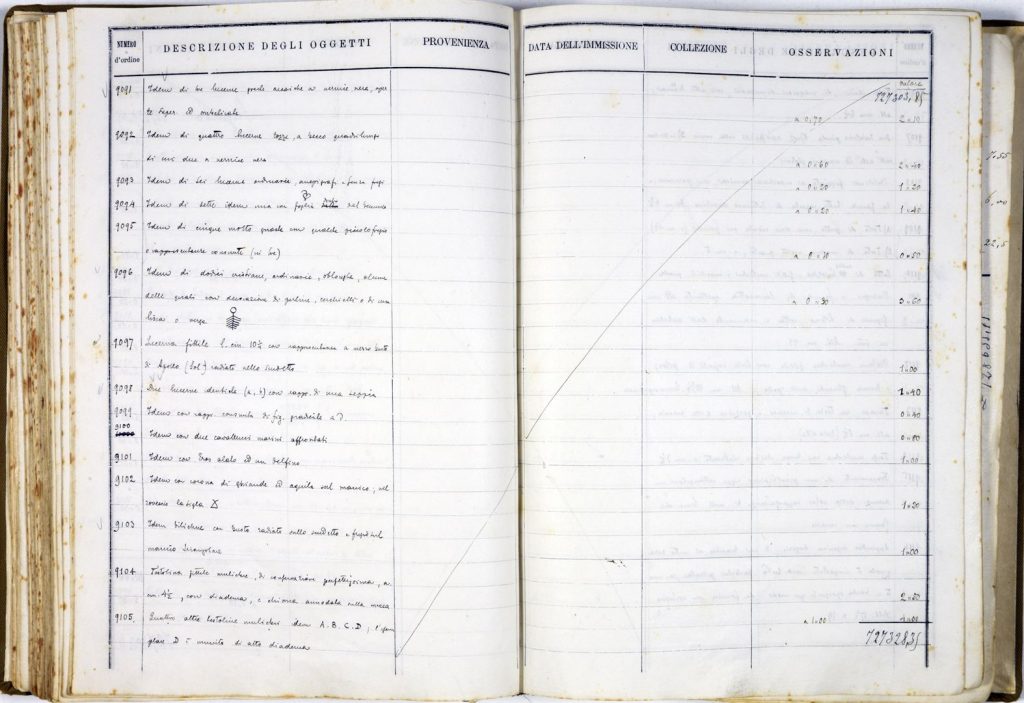 NUMERO d'ordine DESCRIZIONE DEGLI OGGETTI PROVENIENZA DATA DELL'IMMISSIONE COLLEZIONE OSSERVAZIONI
valore
727303,85
9091 Idem di tre lucerne greche a vernice nera, aper
te super. ed ombelicate n 0,70 2 n 10
9092 Idem di quattro lucerne rozze, a becco quadrilungo
di cui due a vernice nera n 0 n 60 2 n 40
9093 Idem di sei lucerne ordinarie, anepigrafi e senza fregi n 0 n 20 1 n 20
9094 Idem di sette idem una con foglia nel n 0 n 20 1 n 40
9095 Idem di cinque molto guaste con qualche piccolo fregio
o rappresentanze consunte (ni tre) n 0 n 10 0 n 50
9096 Idem di dodici cristiane, ordinarie, oblunghe, alcune
delle quali con decorazione di perline, cerchielli o di una
lisca o verga n 0 n 30 3 n 60
9097 Lucerna fittile l. cm 10½ con rappresentanza a mezzo busto
di Apollo (Sol) radiato nello 1 n 00
9098 Due lucerne identiche (a, b) con rapp. di una seppia 1 n 40
9099 Idem con rapp. consunta di fig. gradiente a D. 0 n 40
9100 Idem con due cavallucci marini affrontati 0 n 80
9101 Idem con Eros alato ed un delfino 1 n 00
9102 Idem con corona di ghiande ed aquila sul manico, nel
rovescio la sigla X 1 n 30
9103 Idem bilichne con busto radiato sullo e fregi sul
manico triangolare 1 n 00
9104 Testolina fittile muliebre, di conservazione perfettissima, a.
cm 4½, con diadema, e chioma annodata sulla nuca 2 n 50
9105 Quattro altre testoline muliebri idem A. B. C. D; l'esem
plare D è munito di alto diadema n 1 n 00 4 n 00
727328,35